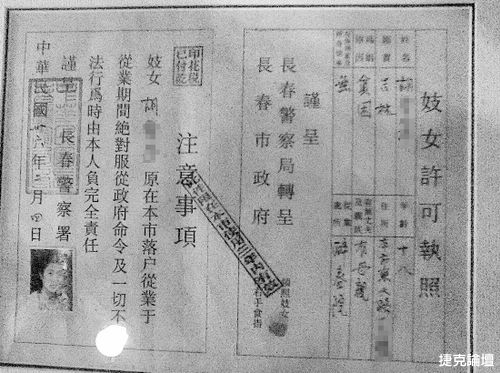 妓女許可執照
姓名
年齡 十八
籍貫 吉林
住所
原因 貧困
有母親
無
謹呈
長春警察局轉呈
長春市政府
領照妓女
注意事項
印花稅
已付訖
妓女 原在本市落户從業于
從業期間絶對服從政府命令及一切不
法行爲時由本人負完全責任
謹呈 長春警察署
中華民國卅六年二月四日
捷克論壇